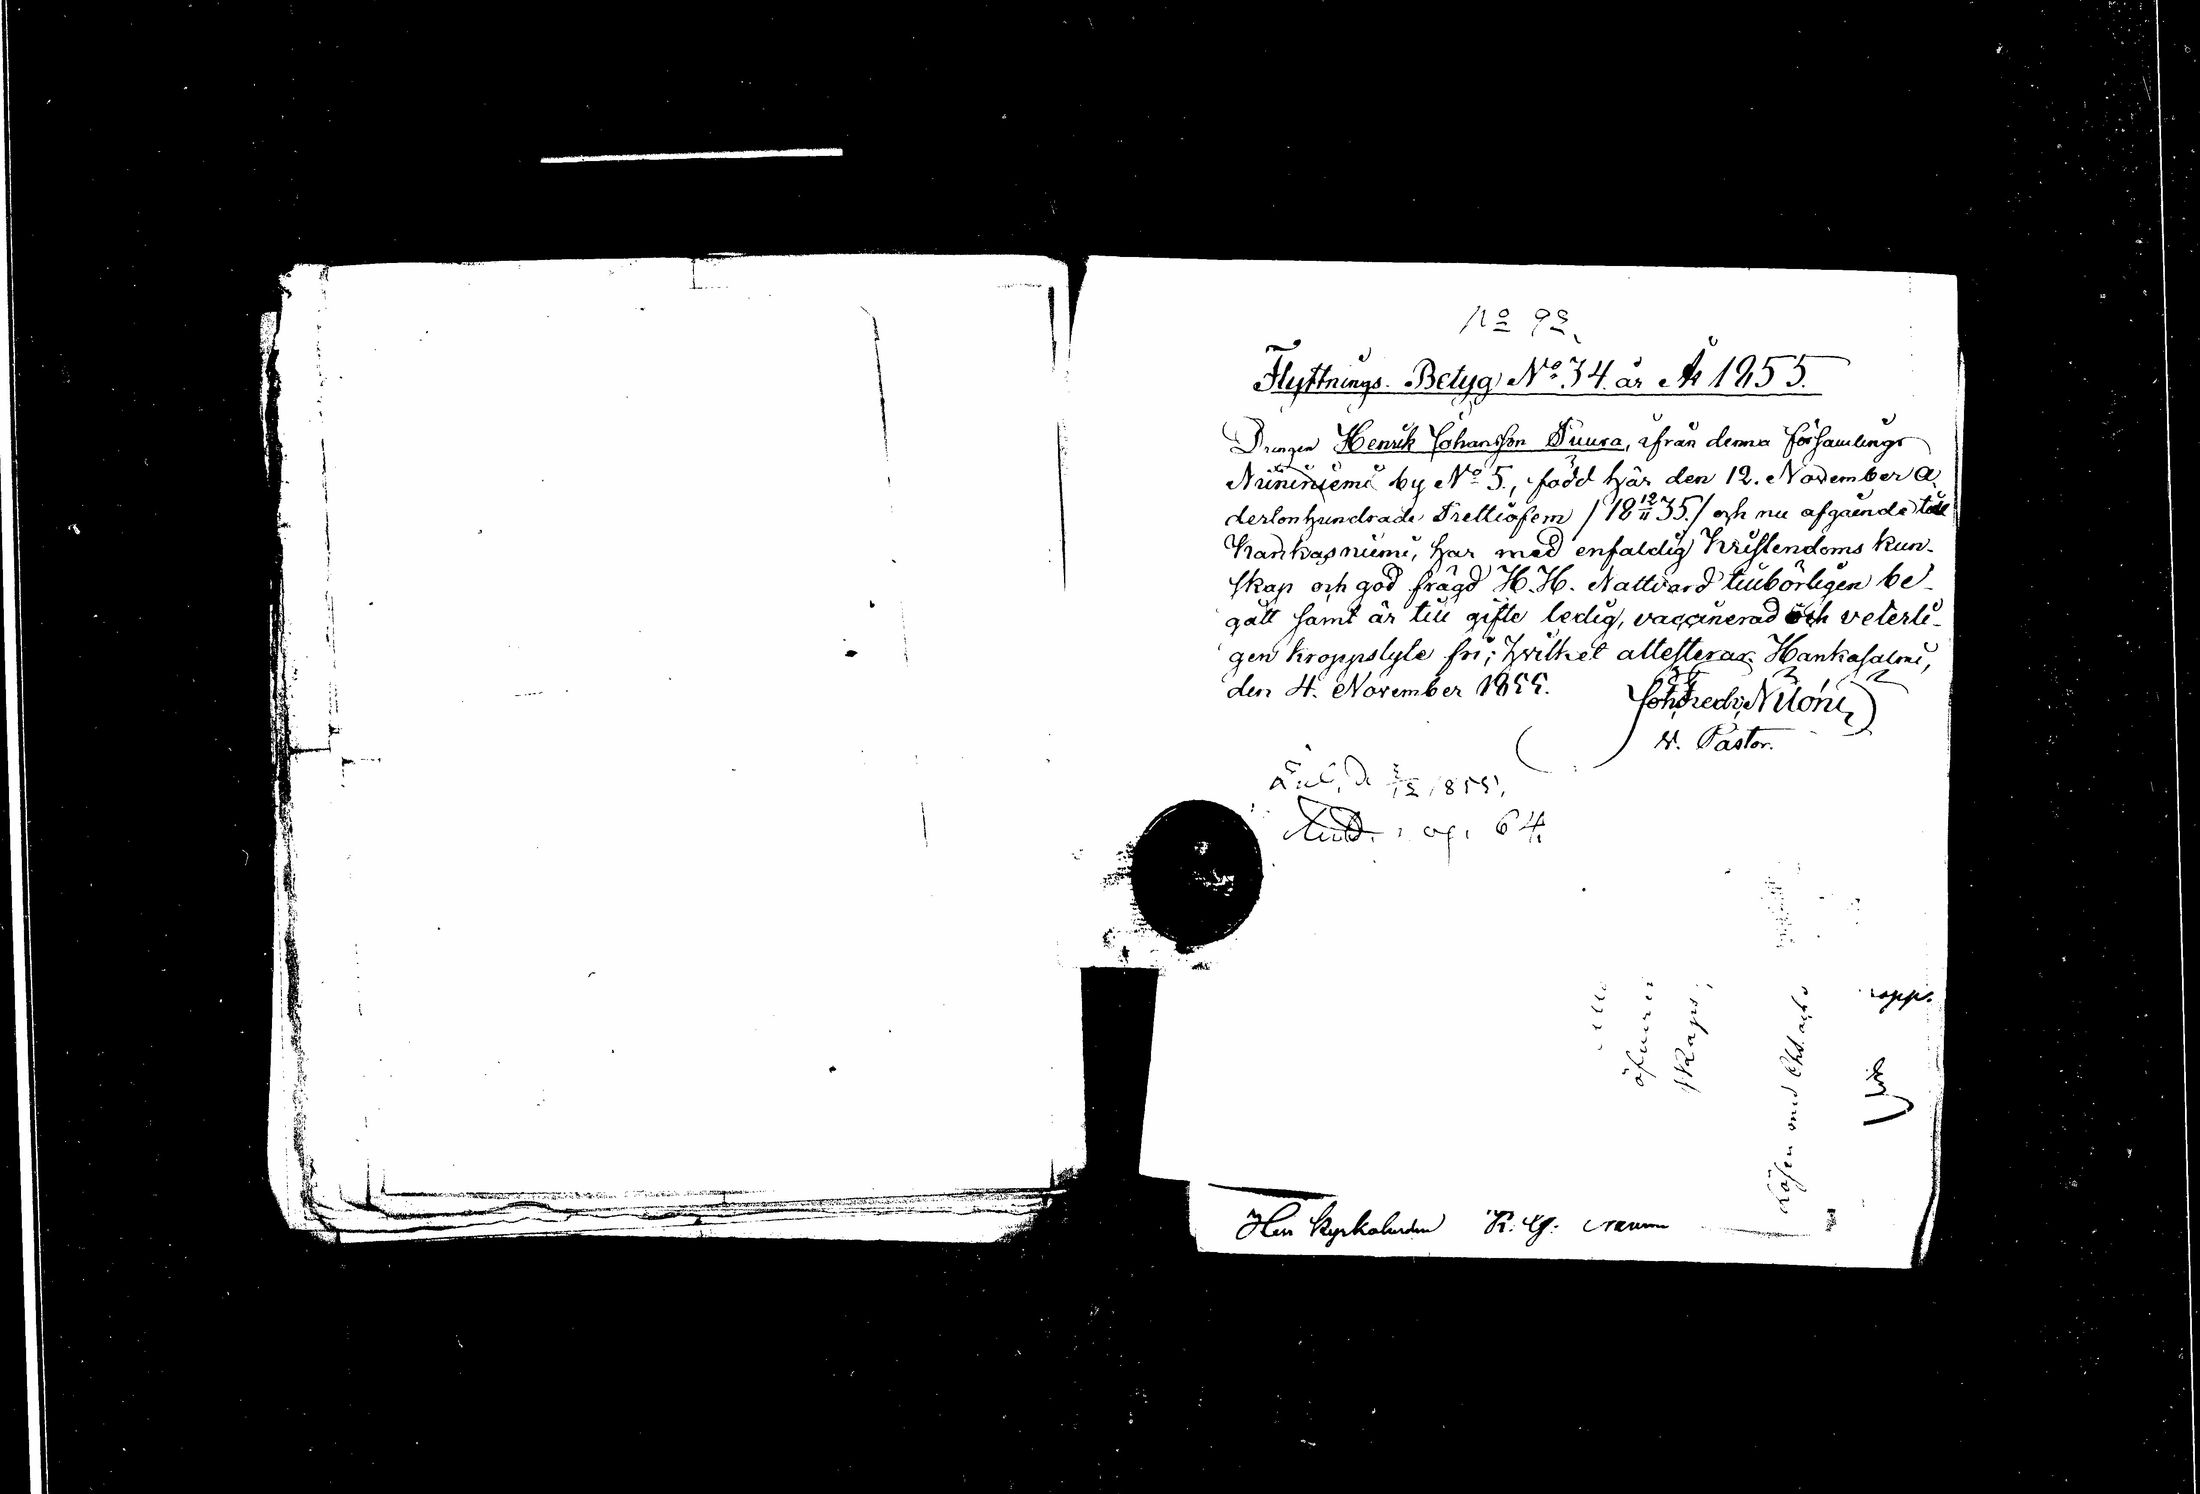 No 92.
Flyttnings-Betyg No 34. år 1855.
Drengen Henrik Johansson Tuura, ifrån denna församlings
Niininiemi by No 5., född här den 12. November a
dertonhundrade Trettiofem /18 12/11 35./ och nu afgående till
Kankasniemi, har med enfaldig Kristendoms kun-
skap och god frägd H.H. Nattvard tillbörligen be-
gått samt är till gifte ledig, vaccinerad och veterli-
gen kroppslyte fri; hvilket attesterar. Hankasalmi,
den 4. November 1855.
Joh. Fredr. Niloni
v. Pastor.
1855.
64.
skaps
Lösen med
opp.
Herr Kyrkoherden